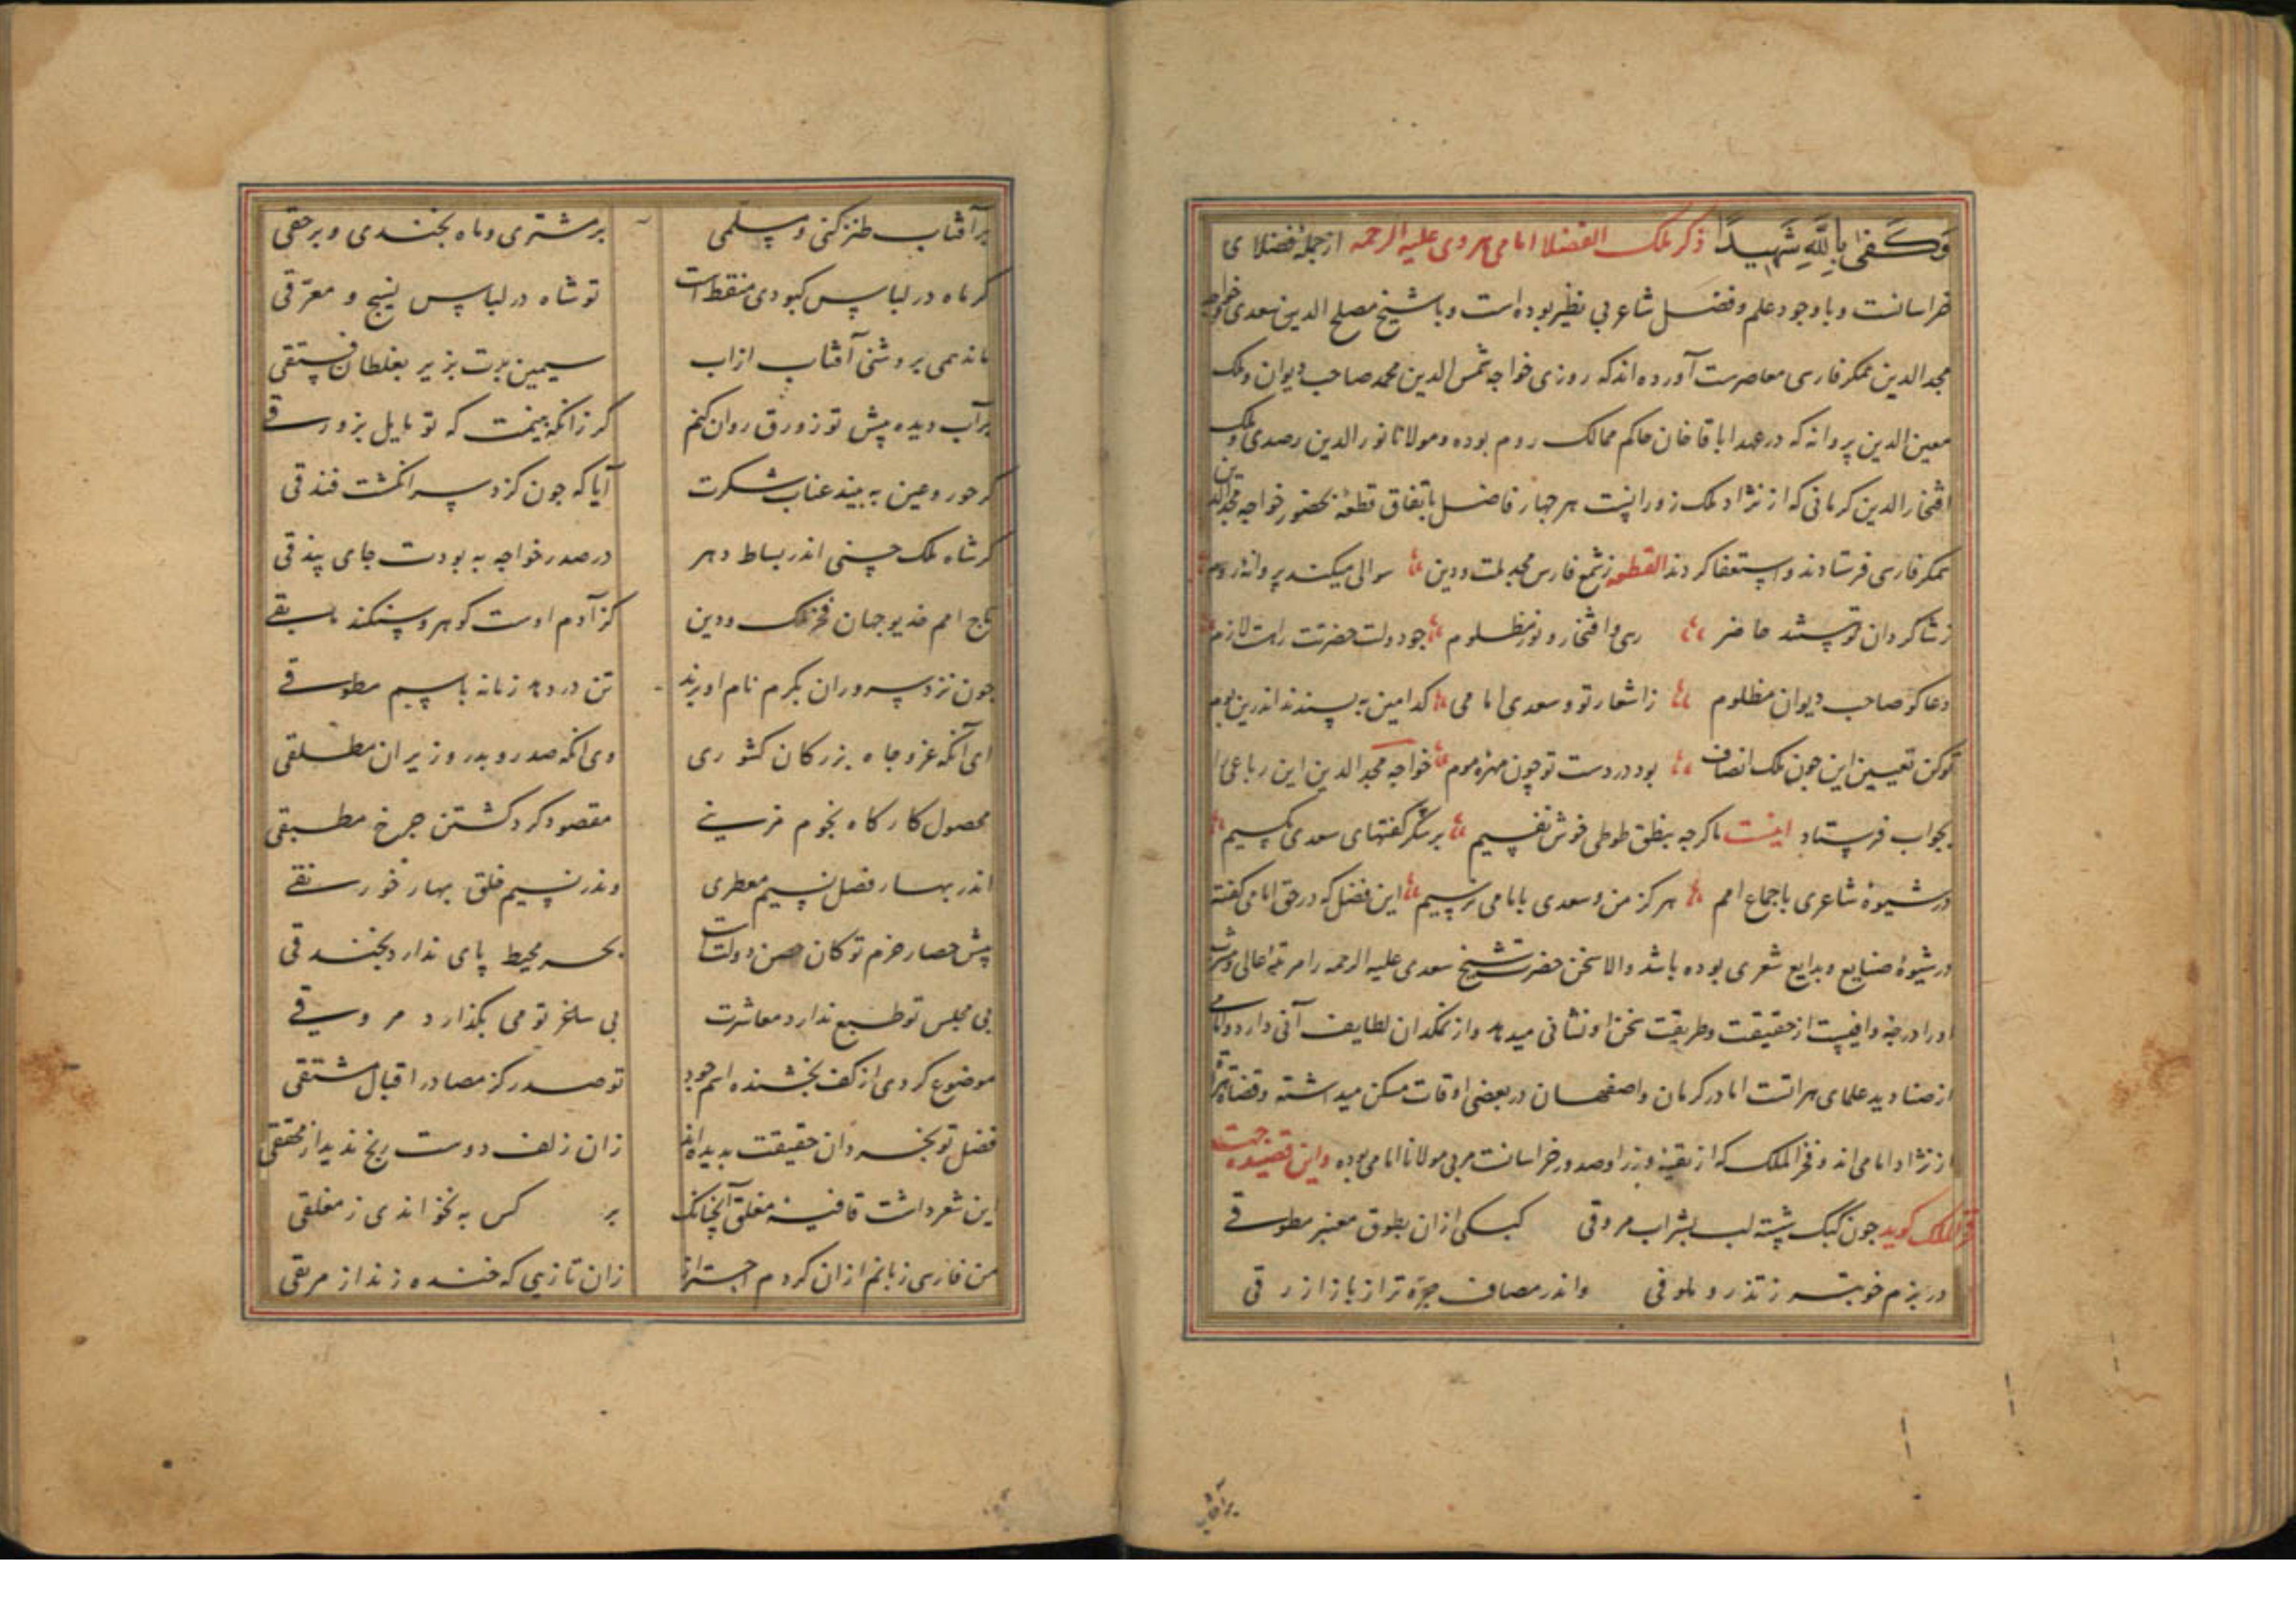 وَكَفىٰ بِاللَّهِ شَهِيدًا ذکر ملک الفضلا امامی هروی علیه الرحمه از جملهٔ فضلای
خراسانست و با وجود علم و فضل شاعر بی نظیر بوده است و با شیخ مصلح الدین سعدی خواجه
مجد الدین همکر فارسی معاصرست آورده اند که روزی خواجه شمس الدین محمد صاحب دیوان و ملک
معین الدین پروانه که در عهد اباقا خان حاکم ممالک روم بوده و مولانا نور الدین رصدی و ملک
افتخار الدین کرمانی که از نژاد ملک زوزانیست هر چهار فاضل باتفاق قطعهٔ بحضور خواجه مجد الدین
همکر فارسی فرستادند و استفتا کردند القطعه ز شمع فارس مجد ملت و دین سوالی میکند پروانه روم
ز شاکردان تو هستند حاضر رهی و افتخار و نور مظلوم جو دولت حضرتت راست لازم
دعا کو صاحب دیوان مظلوم ز اشعار تو و سعدی امامی کدامین به پسندند اندرین بوم
تو کن تعیین این چون ملک انصاف بود در دست تو چون مهره موم خواجه مجد الدین این رباعی را
بجواب فرستاد اینست ما کرچه بنطق طوطی خوش نفسیم بر شکر کفتهای سعدی مکسیم
در شیوهٔ شاعری باجماع امم هرکز من و سعدی بامامی نرسیم این فضل که در حق امامی کفته
در شیوهٔ صنایع و بدایع شعری بوده باشد والا سخن حضرت شیخ سعدی علیه الرحمه را مرتبهٔ عالی و مشرب
او را درجهٔ وافیست از حقیقت و طریقت سخن او نشانی میدهد و از نمکدان لطایف آنی دارد و امامی
از صنادید علمای هراتست اما در کرمان و اصفهان در بعضی اوقات مسکن میداشته و قضاة
از نژاد امامی اند و فخر الملک که از بقیهٔ وزرا و صدور خراسانست مربی مولانا امامی بوده و این قصیده جهت
فخر الملک کوید جون کبک شسته لب بشراب مروقی کبکی ازان بطوق معنبر مطوقی
در بزم خوبتر ز تذرو ملوقی واندر مصاف جره تر از باز ازرقی
برآفتاب
برآفتاب طنز کنی و مسلمی بر مشتری و ماه بخندی و برحقی
کر ماه در لباس کبودی منقط است تو شاه در لباس نسیج و معرقی
ماند همی بروشنی آفتاب از اب سیمین برت بزیر بغلطان فستقی
برآب دیده پیش تو زورق روان کنم کر زانکه بینمت که تو مایل بزورقی
کر حور و عین به بیند عناب شکرت آیا که جون کزد سر انکشت فندقی
کر شاه ملک حسنی اندر بساط دهر در صدر خواجه به بودت جای بیذقی
تاج امم خدیو جهان فخر ملک و دین کز آدم اوست کوهر و سنکند بقی
جون نزد سروران بکرم نام او برند تن در دهد زمانه باسیم مطوقی
ای آنکه عز و جاه بزرکان کشوری وی انکه صدر و بدر وزیران مطلقی
محصول کار کاه نجوم مزینی مقصود کرد کشتن جرخ مطبقی
اندر بهار فضل نسیم معطری وندر نسیم خلق بهار خورنقی
پیش حصار حزم تو کان حصن دولتست بحر محیط پای ندارد بخندقی
بی مجلس تو طبع ندارد معاشرت بی ساغر تو می بگذارد مروقی
موضوع کردی از کف بخشنده اسم جود تو صدر کز مصادر اقبال مشتقی
فضل تو بخردان حقیقت بدیده اند زان زلف دوست رنج ندید از محققی
این شعر داشت قافیه مغلق آنجنانک بر کس به نخواندی ز مغلقی
من فارسی زبانم ازان کردم احتراز زان تازیی که خنده زند از مربقی